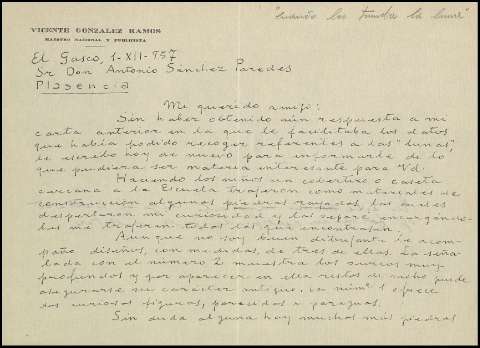 "cuando les tumba la luna"
VICENTE GONZALEZ RAMOS
MAESTRO NACIONAL Y PUBLICISTA
El Gasco, 1-XII-957
Sr Don Antonio Sánchez Paredes
Plasencia
Me querido amigo:
Sin haber obtenido aún respuesta a mi
carta anterior en la que le facilitaba los datos
que había podido recoger referentes a las "lunas",
le escribo hoy de nuevo para informarle de lo
que pudiera ser materia interesante para Vd.
Haciendo los niños un cobertizo o caseta
cercana a la Escuela trajeron como materiales de
construcción algunas piedras rayadas, las cuales
despertaron mi curiosidad y las separé encargándo-
les me trajeran todas las que encontrasen.
Aunque no soy buen dibujante le acom-
paño diseños, con medidas, de tres de ellas. La seña-
lada con el número 2 muestra los surcos muy
profundos y por aparecer en ella restos de nicho puede
asegurarse su carácter antiguo. La núm 1 ofrece
dos curiosas figuras, parecidas a paraguas.
Sin duda alguna hay muchas más piedras